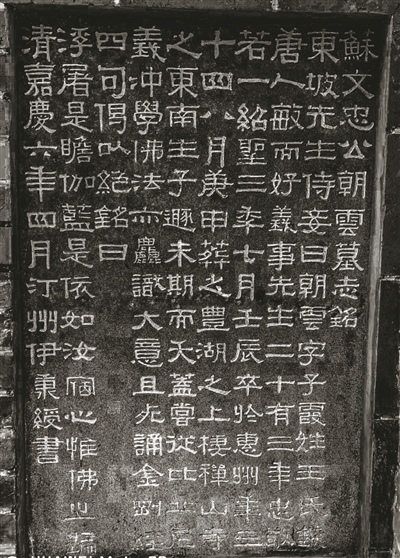 蘇文忠公朝雲墓志銘
東坡先生侍妾曰朝雲字子霞姓王氏錢
唐人敏而好義事先生二十有三年忠敬
若一紹聖三年七月壬辰卒於惠州年三
十四八月庚申葬之豐湖之上棲禪山寺
之東南生子遯未期而夭蓋嘗從比丘尼
義沖學佛法而麤識大意且死誦金剛經
四句偈以絕銘曰
浮屠是瞻伽藍是依如汝宿心惟佛之歸
清嘉慶六年四月汀州伊秉綬書